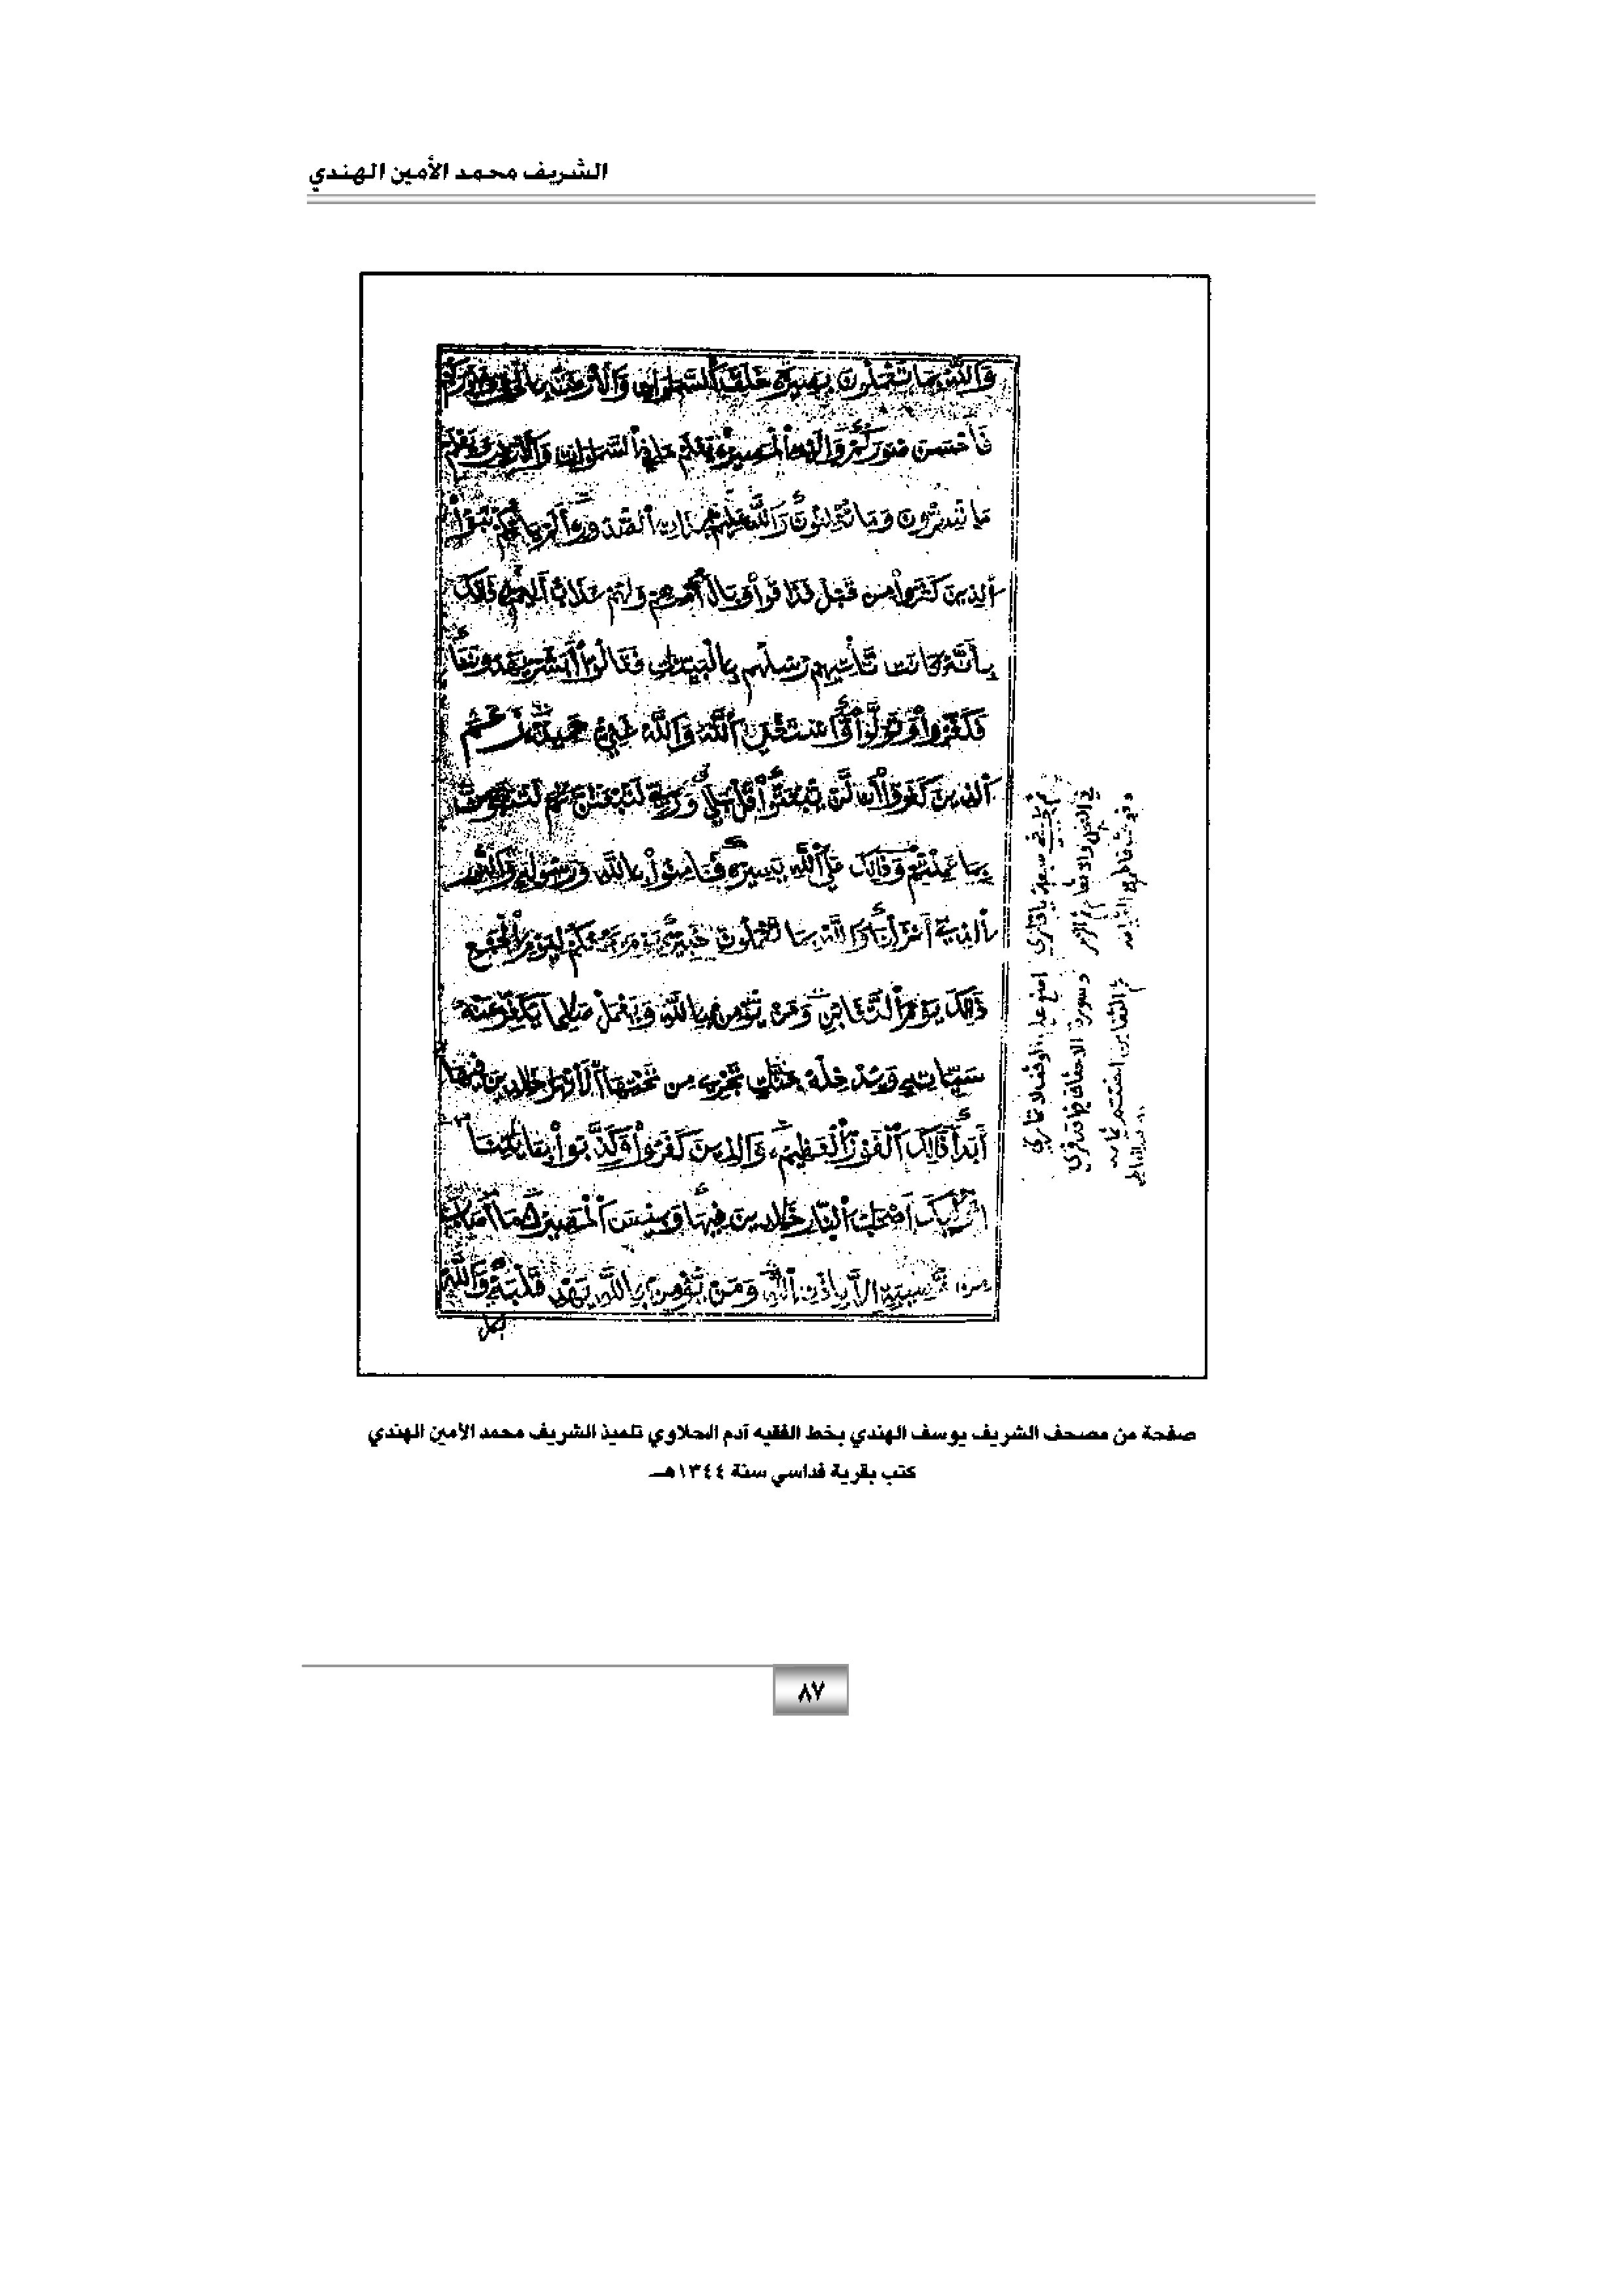 الشريف محمد الأمين الهندي
وَاللَّهُ بِمَا تَعْمَلُونَ بَصِيرٌ خَلَقَ السَّمَٰوَٰتِ وَالْأَرْضَ بِالْحَقِّ وَصَوَّرَكُمْ
فَأَحْسَنَ صُوَرَكُمْ وَإِلَيْهِ الْمَصِيرُ يَعْلَمُ مَا فِي السَّمَٰوَٰتِ وَالْأَرْضِ وَيَعْلَمُ
مَا تُسِرُّونَ وَمَا تُعْلِنُونَ وَاللَّهُ عَلِيمٌ بِذَاتِ الصُّدُورِ أَلَمْ يَأْتِكُمْ نَبَؤُا
الَّذِينَ كَفَرُوا مِن قَبْلُ فَذَاقُوا وَبَالَ أَمْرِهِمْ وَلَهُمْ عَذَابٌ أَلِيمٌ ذَٰلِكَ
بِأَنَّهُ كَانَت تَّأْتِيهِمْ رُسُلُهُم بِالْبَيِّنَٰتِ فَقَالُوا أَبَشَرٌ يَهْدُونَنَا
فَكَفَرُوا وَتَوَلَّوا وَّاسْتَغْنَى اللَّهُ وَاللَّهُ غَنِيٌّ حَمِيدٌ زَعَمَ
الَّذِينَ كَفَرُوا أَن لَّن يُبْعَثُوا قُلْ بَلَىٰ وَرَبِّي لَتُبْعَثُنَّ ثُمَّ لَتُنَبَّؤُنَّ
بِمَا عَمِلْتُمْ وَذَٰلِكَ عَلَى اللَّهِ يَسِيرٌ فَـَٔامِنُوا بِاللَّهِ وَرَسُولِهِ وَالنُّورِ
الَّذِي أَنزَلْنَا وَاللَّهُ بِمَا تَعْمَلُونَ خَبِيرٌ يَوْمَ يَجْمَعُكُمْ لِيَوْمِ الْجَمْعِ
ذَٰلِكَ يَوْمُ التَّغَابُنِ وَمَن يُؤْمِن بِاللَّهِ وَيَعْمَلْ صَٰلِحًا يُكَفِّرْ عَنْهُ
سَيِّـَٔاتِهِ وَيُدْخِلْهُ جَنَّٰتٍ تَجْرِي مِن تَحْتِهَا الْأَنْهَٰرُ خَٰلِدِينَ فِيهَا
أَبَدًا ذَٰلِكَ الْفَوْزُ الْعَظِيمُ وَالَّذِينَ كَفَرُوا وَكَذَّبُوا بِـَٔايَٰتِنَا
أُولَٰئِكَ أَصْحَٰبُ النَّارِ خَٰلِدِينَ فِيهَا وَبِئْسَ الْمَصِيرُ مَا أَصَابَ
مِن مُّصِيبَةٍ إِلَّا بِإِذْنِ اللَّهِ وَمَن يُؤْمِن بِاللَّهِ يَهْدِ قَلْبَهُ وَاللَّهُ
بكل
صفحة من مصحف الشريف يوسف الهندي بخط الفقيه آدم الحلاوي تلميذ الشريف محمد الأمين الهندي
كتب بقرية فداسي سنة ١٣٤٤هـ
٨٧